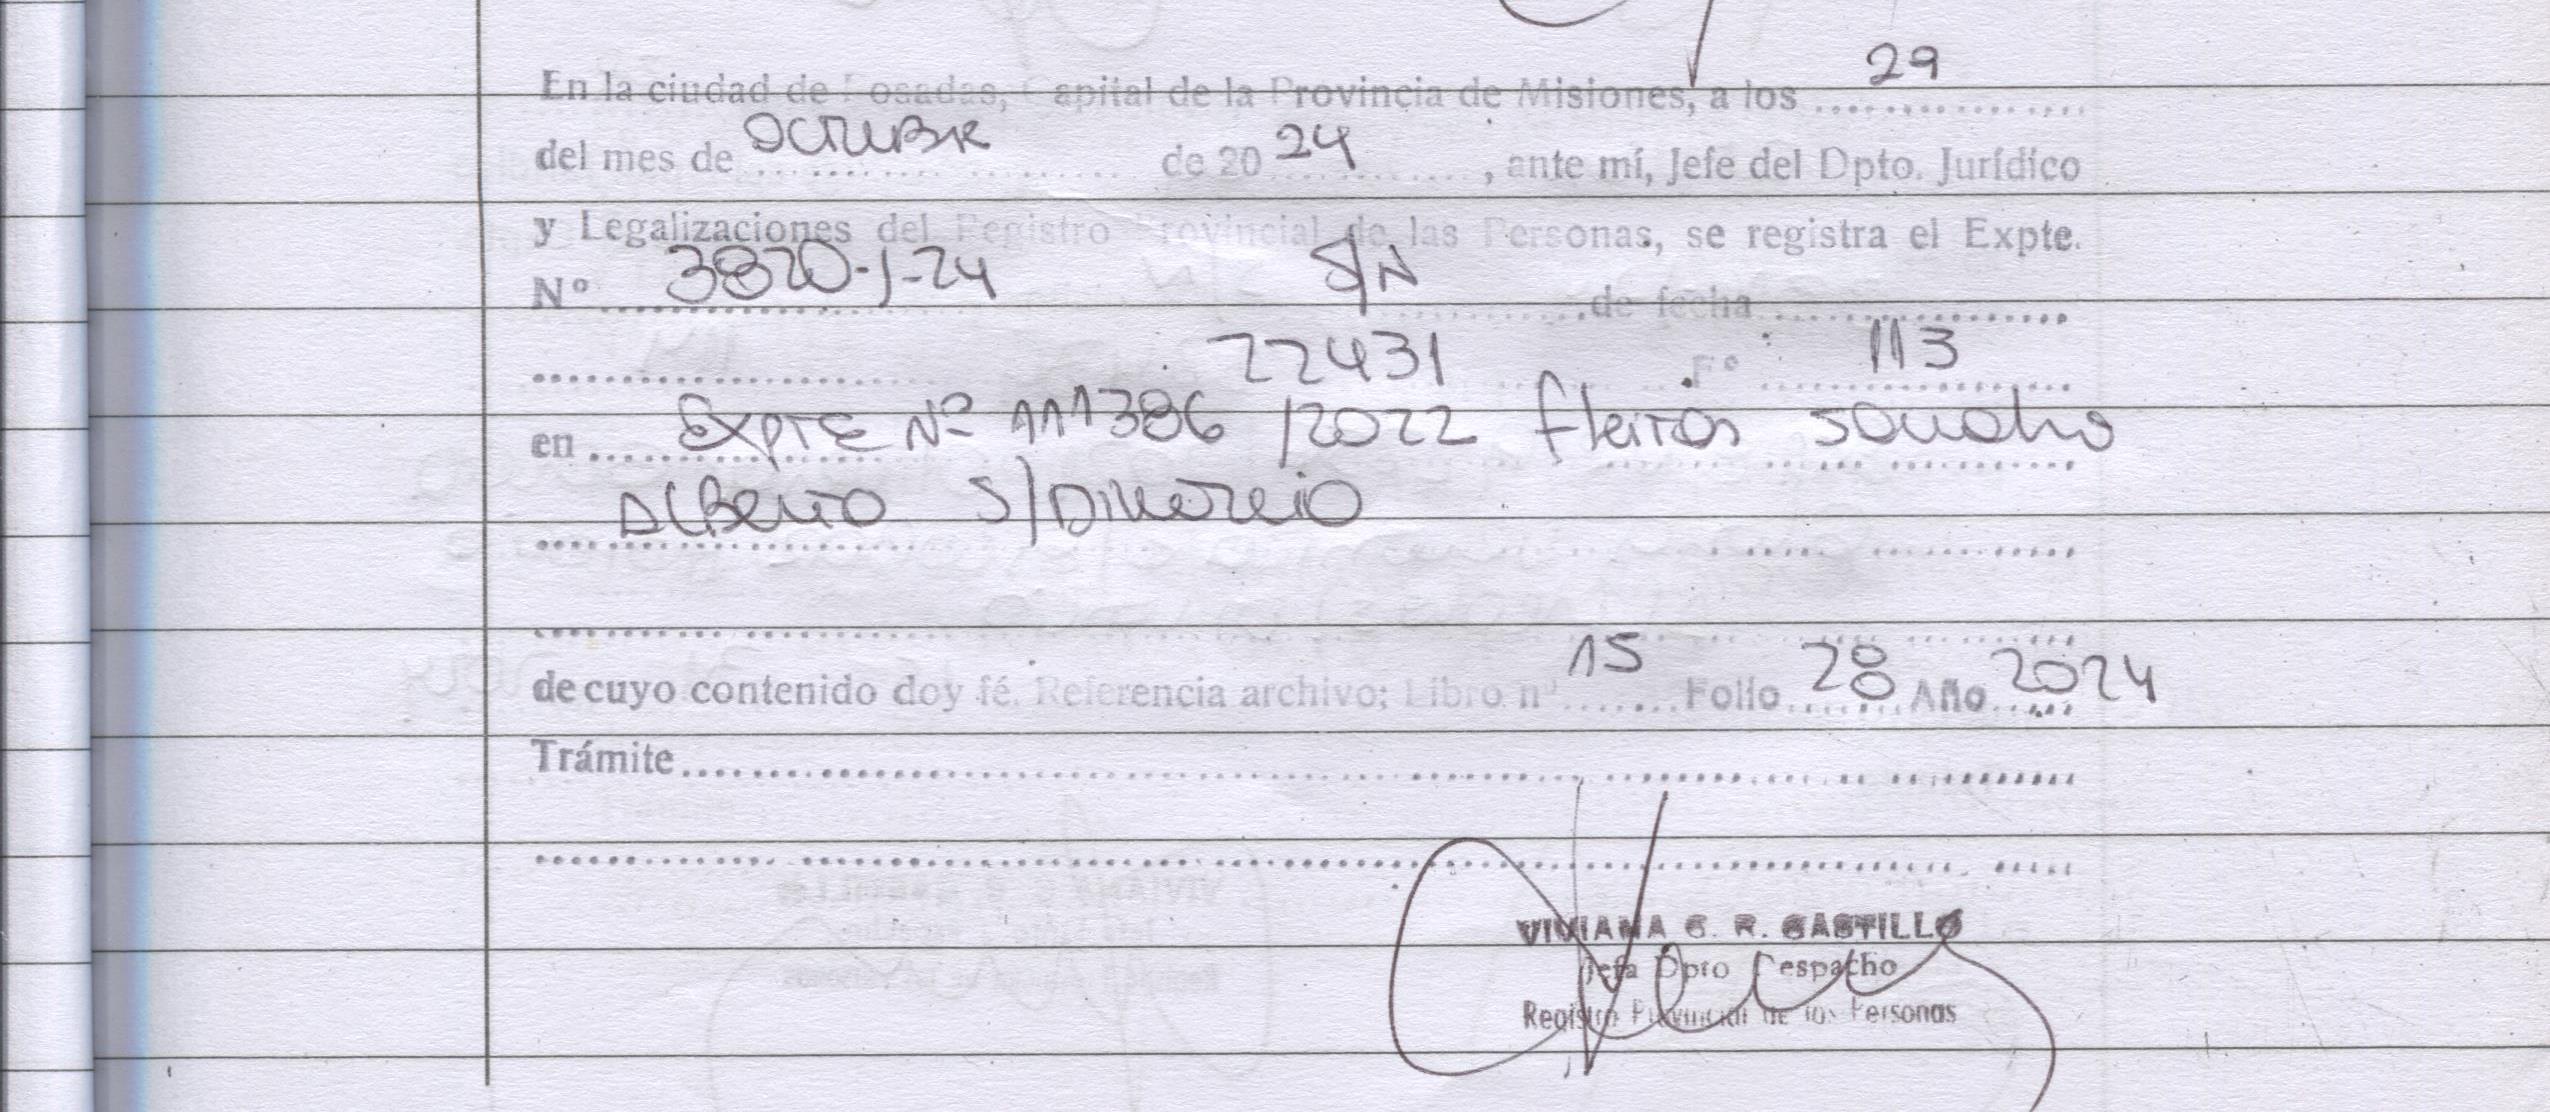 En la ciudad de Posadas, Capital de la Provincia de Misiones, a los 29
del mes de OCTUBRE de 20 24, ante mí, Jefe del Dpto. Jurídico
y Legalizaciones del Registro Provincial de las Personas, se registra el Expte.
Nº 3820-J-24 S/N de fecha
22431 Fº 113
en Expte Nº 111386 /2022 fleitas sandro
Alberto S/Divorcio
de cuyo contenido doy fé. Referencia archivo; Libro nº 15 Folio 28 Año 2024
Trámite
VIVIANA C. R. CASTILLO
Jefa Dpto Despacho
Registro Provincial de las Personas